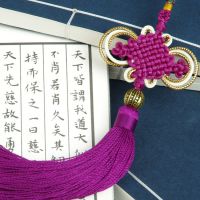 天下皆謂我道
不肖若肖久矣其
持而保之一曰慈
天下先慈故能勇